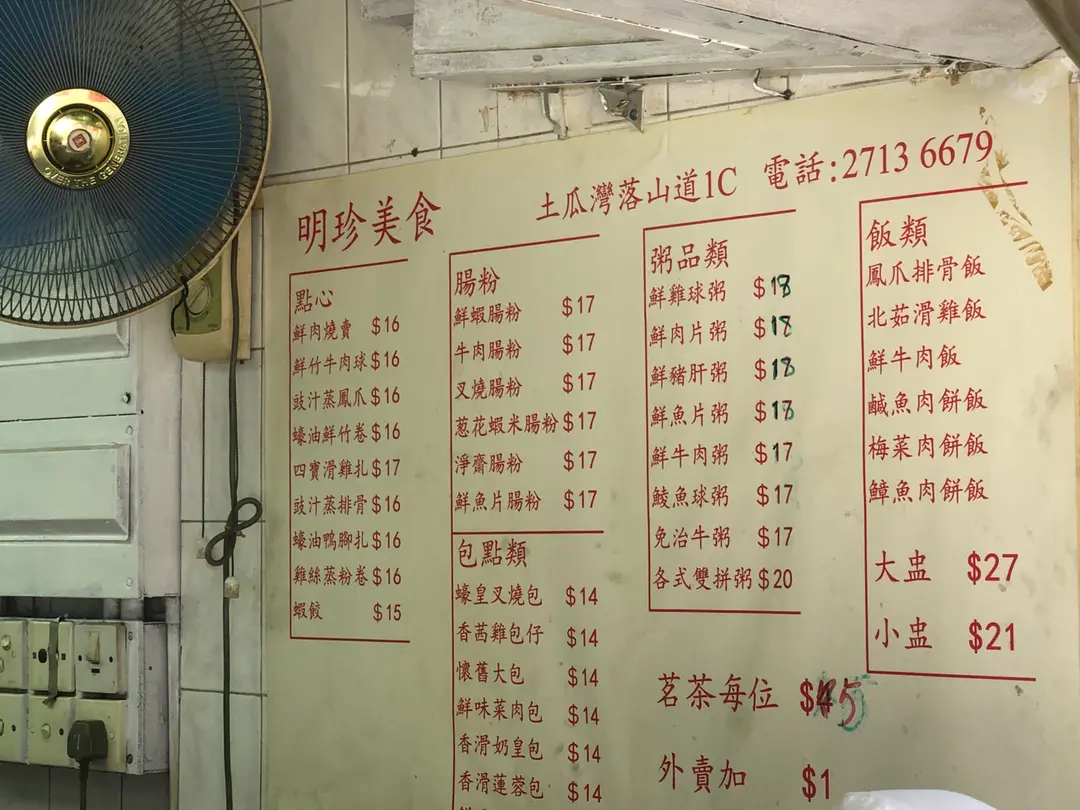 OVER THE GENERATION
明珍美食
土瓜灣落山道1C 電話:2713 6679
點心
鮮肉燒賣 $16
鮮竹牛肉球 $16
豉汁蒸鳳爪 $16
蠔油鮮竹卷 $16
四寶滑雞扎 $17
豉汁蒸排骨 $16
蠔油鴨腳扎 $16
雞絲蒸粉卷 $16
蝦餃 $15
腸粉
鮮蝦腸粉 $17
牛肉腸粉 $17
叉燒腸粉 $17
葱花蝦米腸粉 $17
淨齋腸粉 $17
鮮魚片腸粉 $17
包點類
蠔皇叉燒包 $14
香茜雞包仔 $14
懷舊大包 $14
鮮味菜肉包 $14
香滑奶皇包 $14
香滑蓮蓉包 $14
粥品類
鮮雞球粥 $18
鮮肉片粥 $18
鮮豬肝粥 $18
鮮魚片粥 $18
鮮牛肉粥 $17
鯪魚球粥 $17
免治牛粥 $17
各式雙拼粥 $20
茗茶每位 $5
外賣加 $1
飯類
鳳爪排骨飯
北茹滑雞飯
鮮牛肉飯
鹹魚肉餅飯
梅菜肉餅飯
鱆魚肉餅飯
大盅 $27
小盅 $21